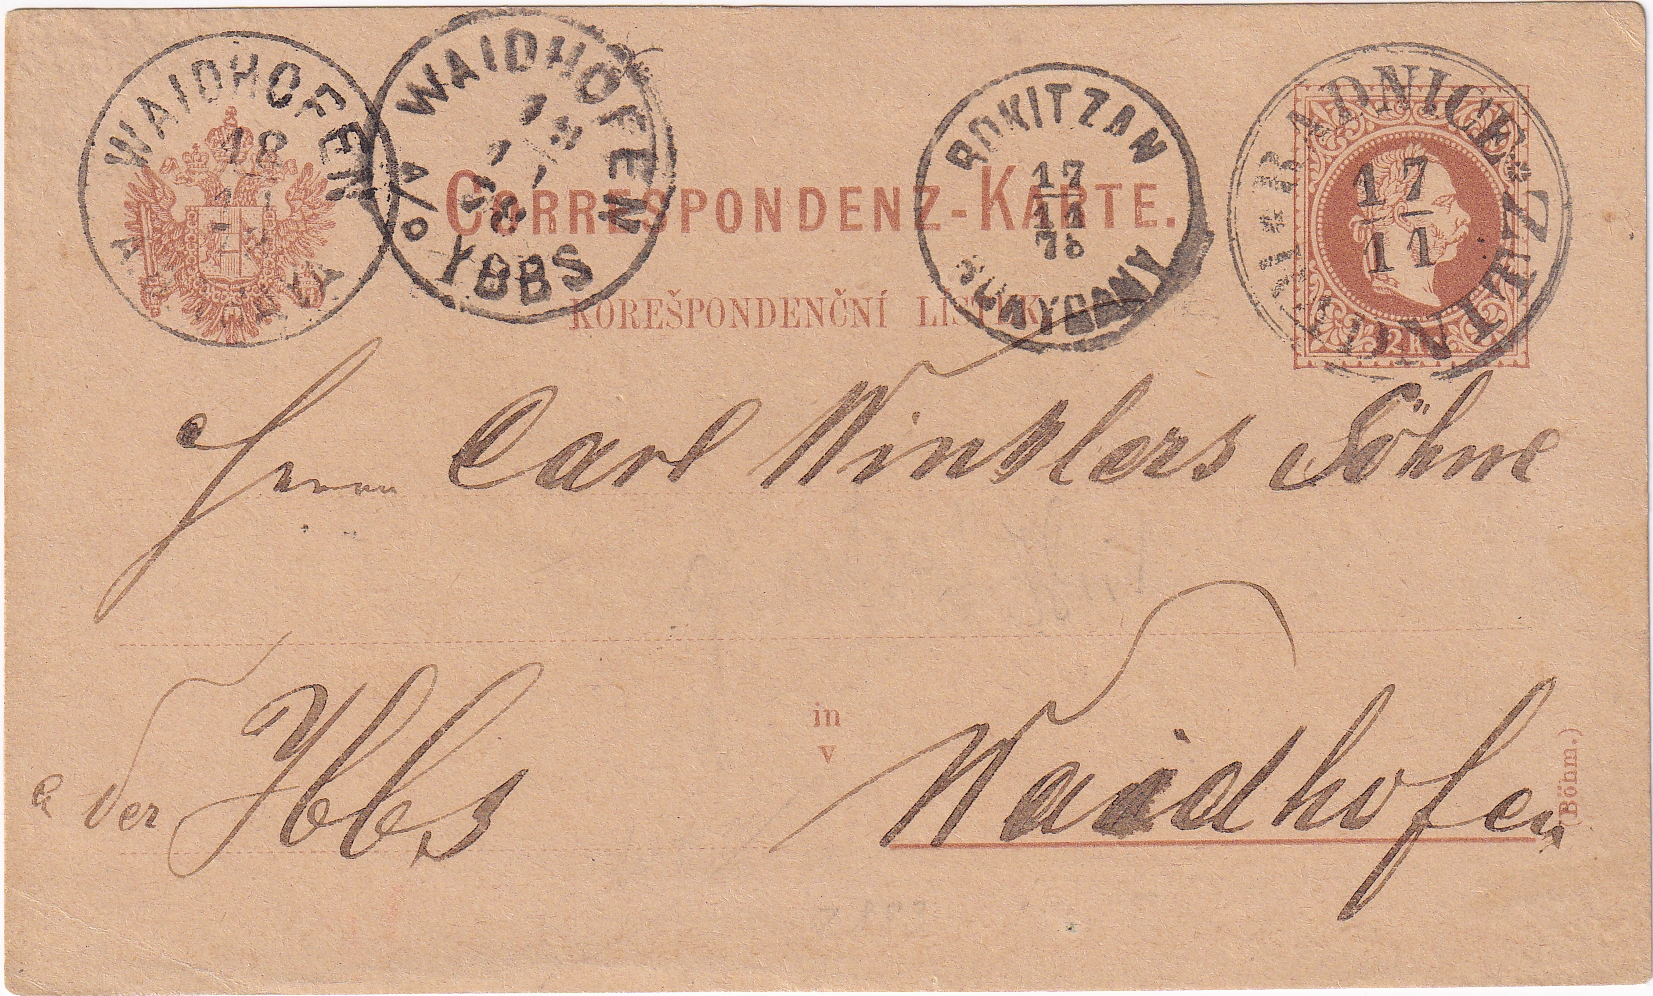 WAIDHOFEN
18
WAIDHOFEN
A/D YBBS
ROKITZAN
17
11
78
ROKYCANY
17
11
CORRESPONDENZ-KARTE.
KOREŠPONDENČNÍ LISTEK
Herrn Carl Winklers Söhne
in
v
(Böhm.)
a der Ybbs Waidhofen